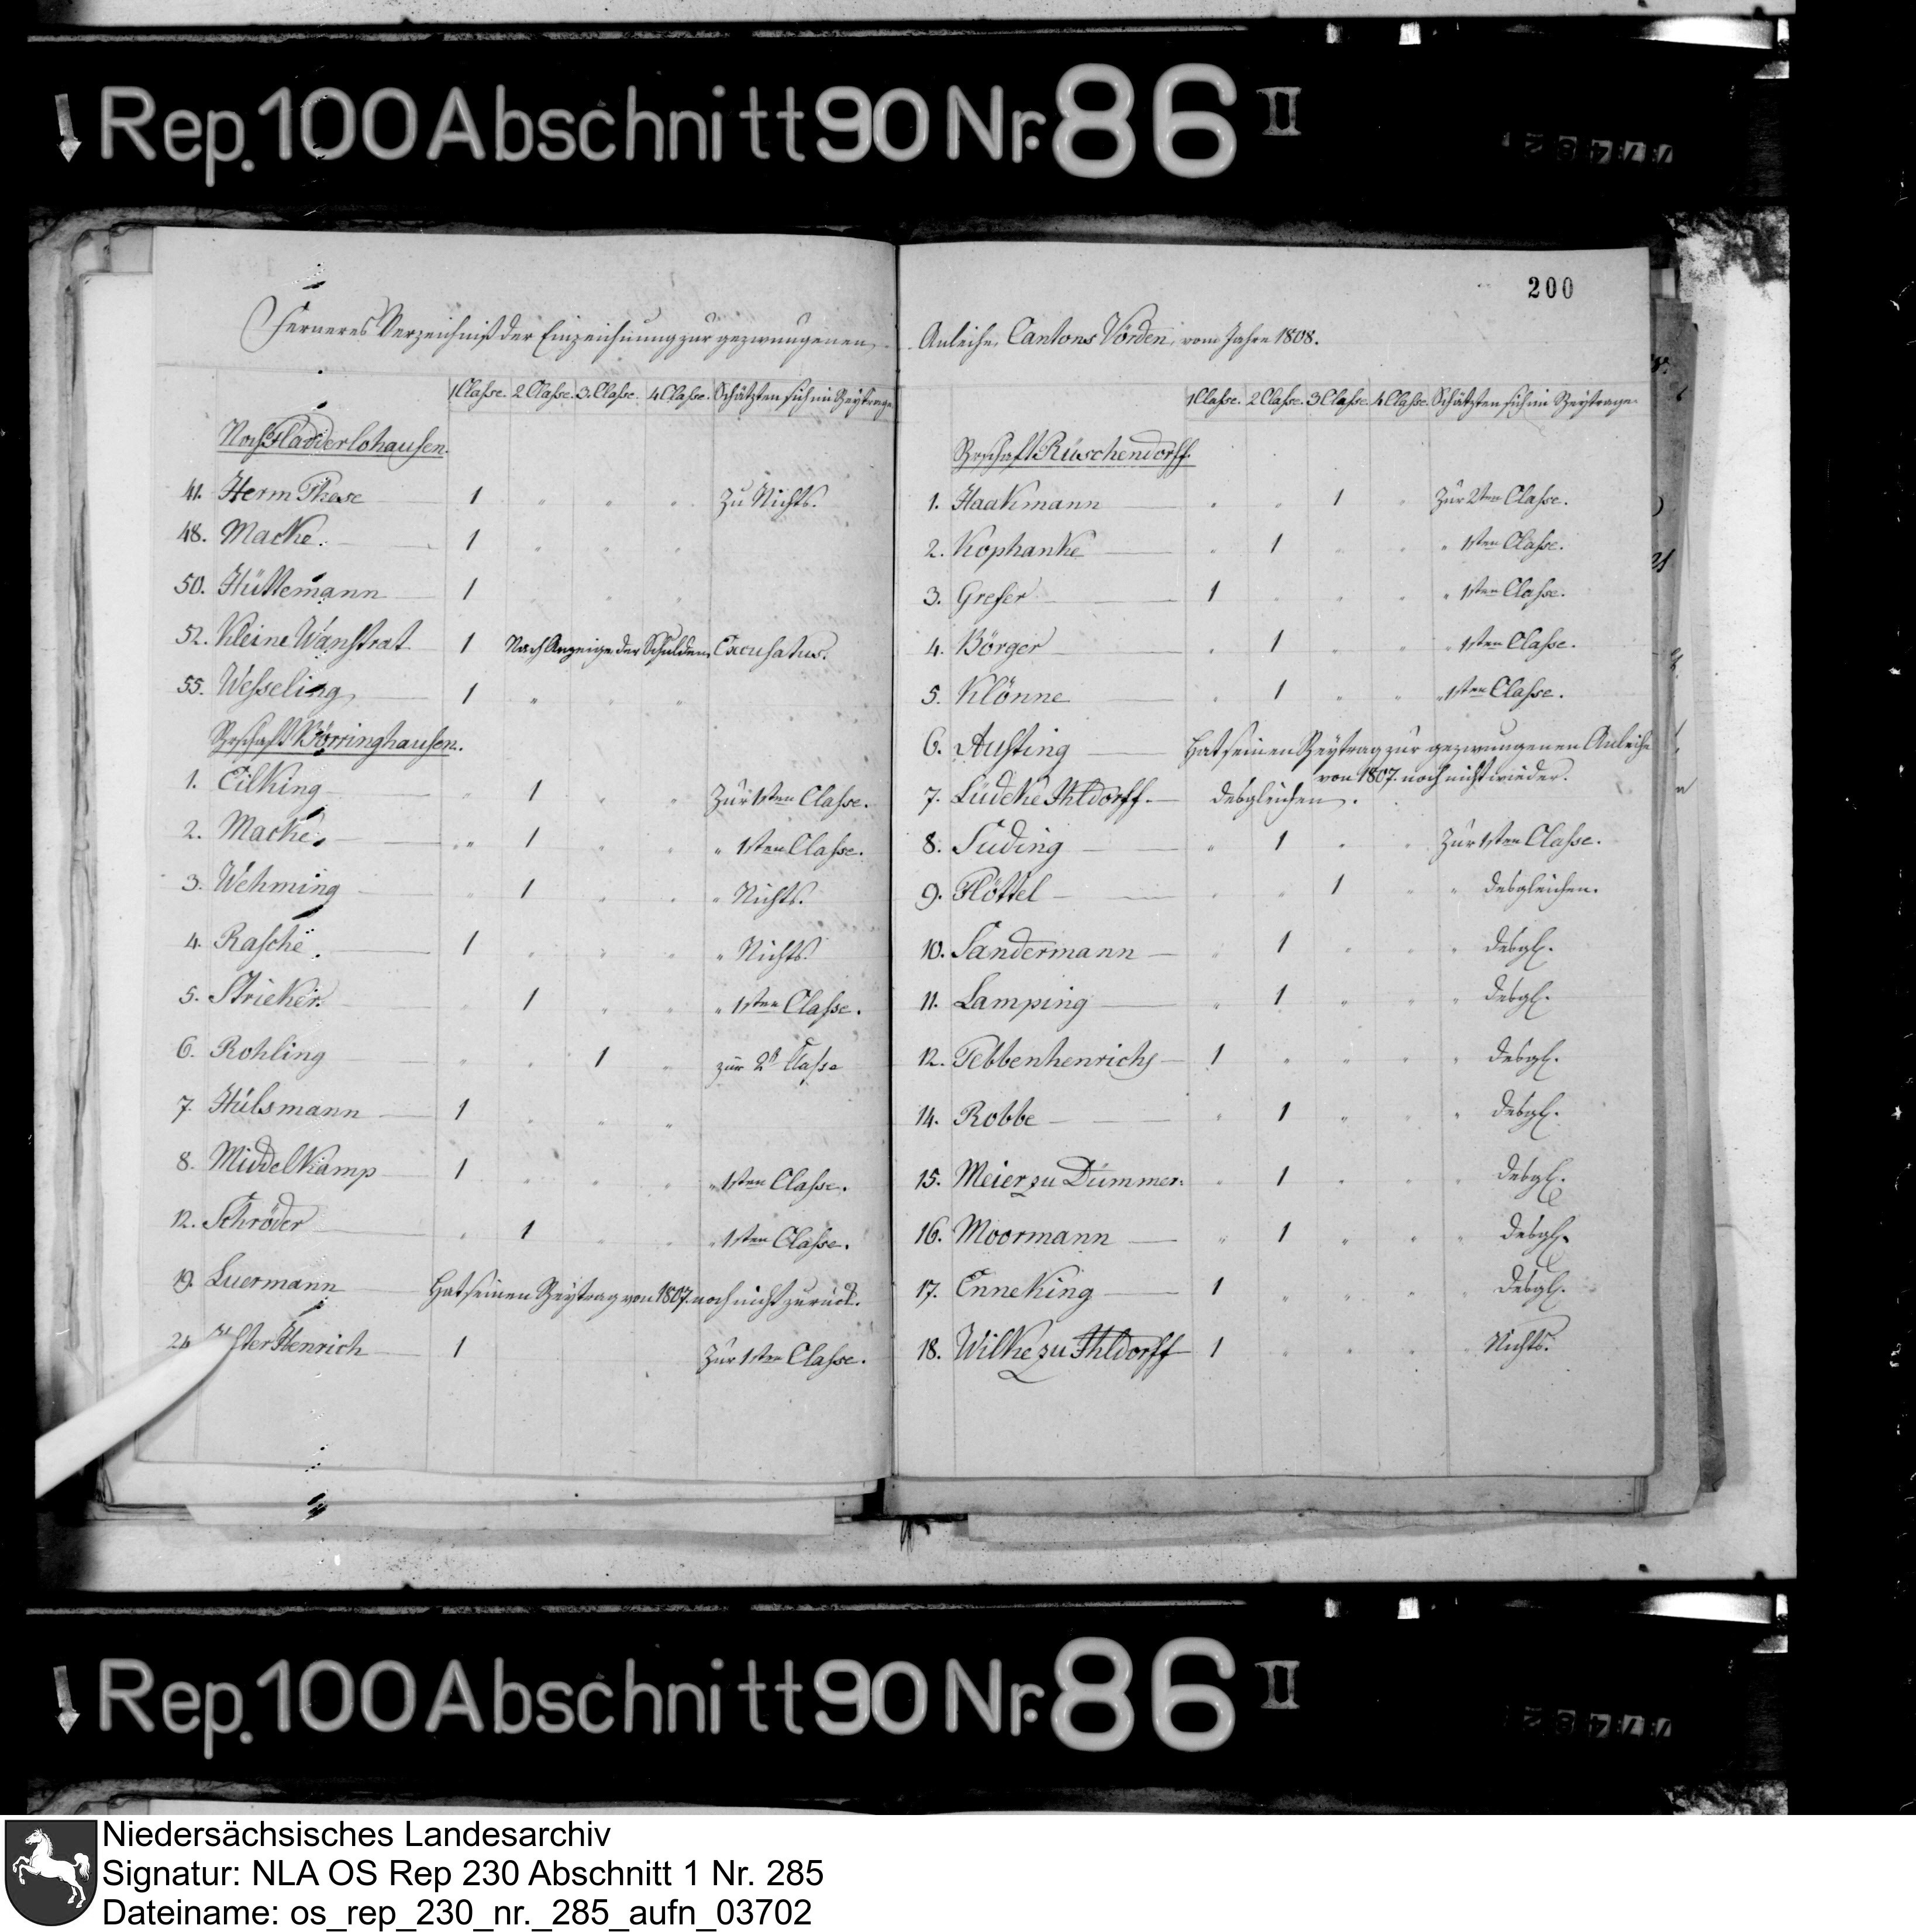 Rep. 100 Abschnitt 90 Nr. 86 II
Ferneres Verzeichniß der Einzeichnung zur gezwungenen
1 Classe. 2 Classe. 3. Classe. 4 Classe. Schätzten sich im Beytrage
Noch Fladderlohausen.
41. Herm These 1 " " " Zu Nichts.
48. Macke. 1 " " "
50. Hüttemann 1 " " "
52. Kleine Wanstrat 1 Nach Anzeige der Schulden, Excusatus.
55. Wesseling 1 " " "
Brschaft Börringhausen.
1. Eilking " 1 " " Zur 1sten Classe.
2. Macke. " 1 " " " 1sten Classe.
3. Wehming " 1 " " " Nichts.
4. Rasche. 1 " " " " Nichts.
5. Strieker. " 1 " " " 1sten Classe.
6. Rohling " " 1 " zur 2n Classe
7. Hülsmann 1 " " "
8. Middelkamp 1 " " " " 1sten Classe.
12. Schröder " 1 " " " 1sten Classe.
19. Luermann Hat seinen Beytrag von 1807. noch nicht zurück.
Henrich 1 Zur 1sten Classe.
200
Anleihe, Cantons Vörden, vom Jahre 1808.
1 Classe. 2 Classe. 3 Classe. 4 Classe. Schätzten sich im Beytrage.
Brschaft Rüschendorff.
1. Haakmann " " 1 " Zur 2ten Classe.
2. Kophanke " 1 " " " 1sten Classe.
3. Grefer 1 " " " " 1sten Classe.
4. Börger " 1 " " " 1sten Classe.
5. Klönne " 1 " " " 1sten Classe.
6. Austing Hat seinen Beytrag zur gezwungenen Anleihe
von 1807. noch nicht wieder.
7. Lüdeke Ihldorff. desgleichen.
8. Suding " 1 " " Zur 1sten Classe.
9. Flöttel " " 1 " " desgleichen.
10. Sandermann " 1 " " " desgl.
11. Lamping " 1 " " " desgl.
12. Tebbenhenrichs 1 " " " " desgl.
14. Robbe " 1 " " " desgl.
15. Meier zu Dümmer. " 1 " " " desgl.
16. Moormann " 1 " " " desgl.
17. Enneking 1 " " " " desgl.
18. Wilke zu Ihldorff 1 " " " Nichts.
Rep. 100 Abschnitt 90 Nr. 86 II
Niedersächsisches Landesarchiv
Signatur: NLA OS Rep 230 Abschnitt 1 Nr. 285
Dateiname: os_rep_230_nr._285_aufn_03702